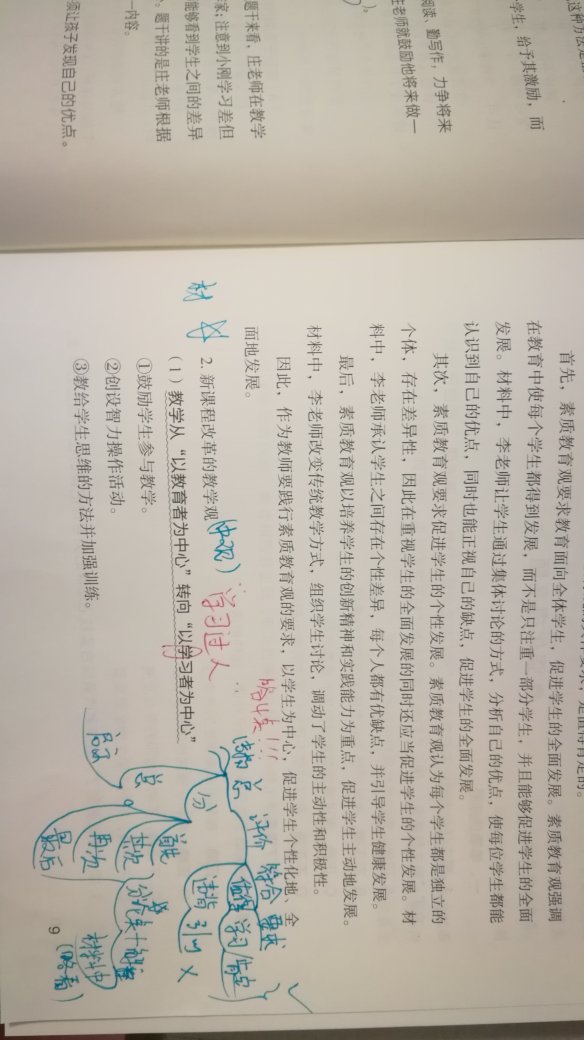 这种方法是
学生，给予其激励，而
阅读、勤写作，力争将来
老师就鼓励他将来做一
题干来看，庄老师在教学
家；注意到小刚学习差但
能够看到学生之间的差异
题干讲的是庄老师根据
一内容。
须让孩子发现自己的优点。
是值得肯定的。
首先，素质教育观要求教育面向全体学生，促进学生的全面发展。素质教育观强调
在教育中使每个学生都得到发展，而不是只注重一部分学生，并且能够促进学生的全面
发展。材料中，李老师让学生通过集体讨论的方式，分析自己的优点，使每位学生都能
认识到自己的优点，同时也能正视自己的缺点，促进学生的全面发展。
其次，素质教育观要求促进学生的个性发展。素质教育观认为每个学生都是独立的
个体，存在差异性，因此在重视学生的全面发展的同时还应当促进学生的个性发展。材
料中，李老师承认学生之间存在个性差异，每个人都有优缺点，并引导学生健康发展。
最后，素质教育观以培养学生的创新精神和实践能力为重点，促进学生主动地发展。
材料中，李老师改变传统教学方式，组织学生讨论，调动了学生的主动性和积极性。
因此，作为教师要践行素质教育观的要求，以学生为中心，促进学生个性化地、全
面地发展。
2. 新课程改革的教学观
（1）教学从“以教育者为中心”转向“以学习者为中心”
①鼓励学生参与教学。
②创设智力操作活动。
③教给学生思维的方法并加强训练。
材
学习过人
总
评价
综合 要求
学习
违背 引以 ×
总
分
首先
其次
再次
最后
材料中
9